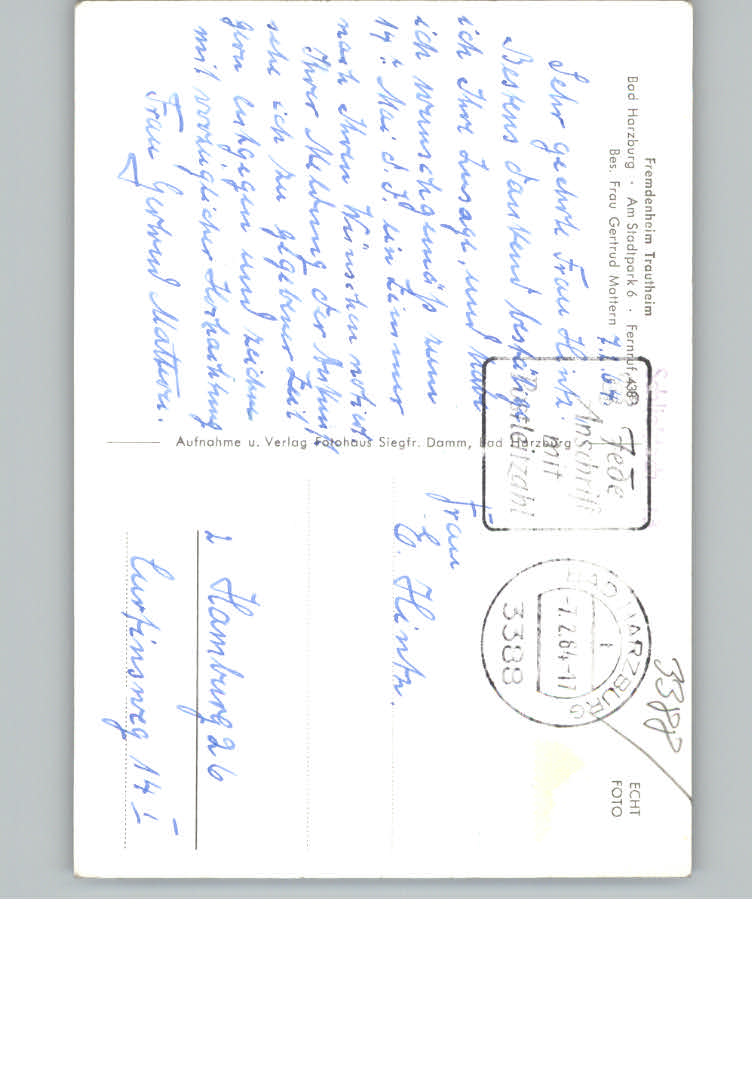 Fremdenheim Trautheim
Bad Harzburg · Am Stadtpark 6 · Fernruf 4383
Bes. Frau Gertrud Mattern
7.2.64
Sehr geehrte Frau Hintz.
Bestens dankend bestätige
ich Ihre Zusage, und habe
ich wunschgemäß zum
14. Mai d. J. ein Zimmer
nach Ihren Wünschen notiert
Ihrer Meldung der Ankunft
sehe ich zu gegebener Zeit
gern entgegen und zeichne
mit vorzüglicher Hochachtung
Frau Gertrud Mattern.
Aufnahme u. Verlag Fotohaus Siegfr. Damm, Bad Harzburg
Jede
Anschrift
mit
Postleitzahl
BAD HARZBURG
1
-7.2.64-17
3388
3388
ECHT
FOTO
Frau
E. Hintz.
2 Hamburg 26
Curtinsweg 14 I